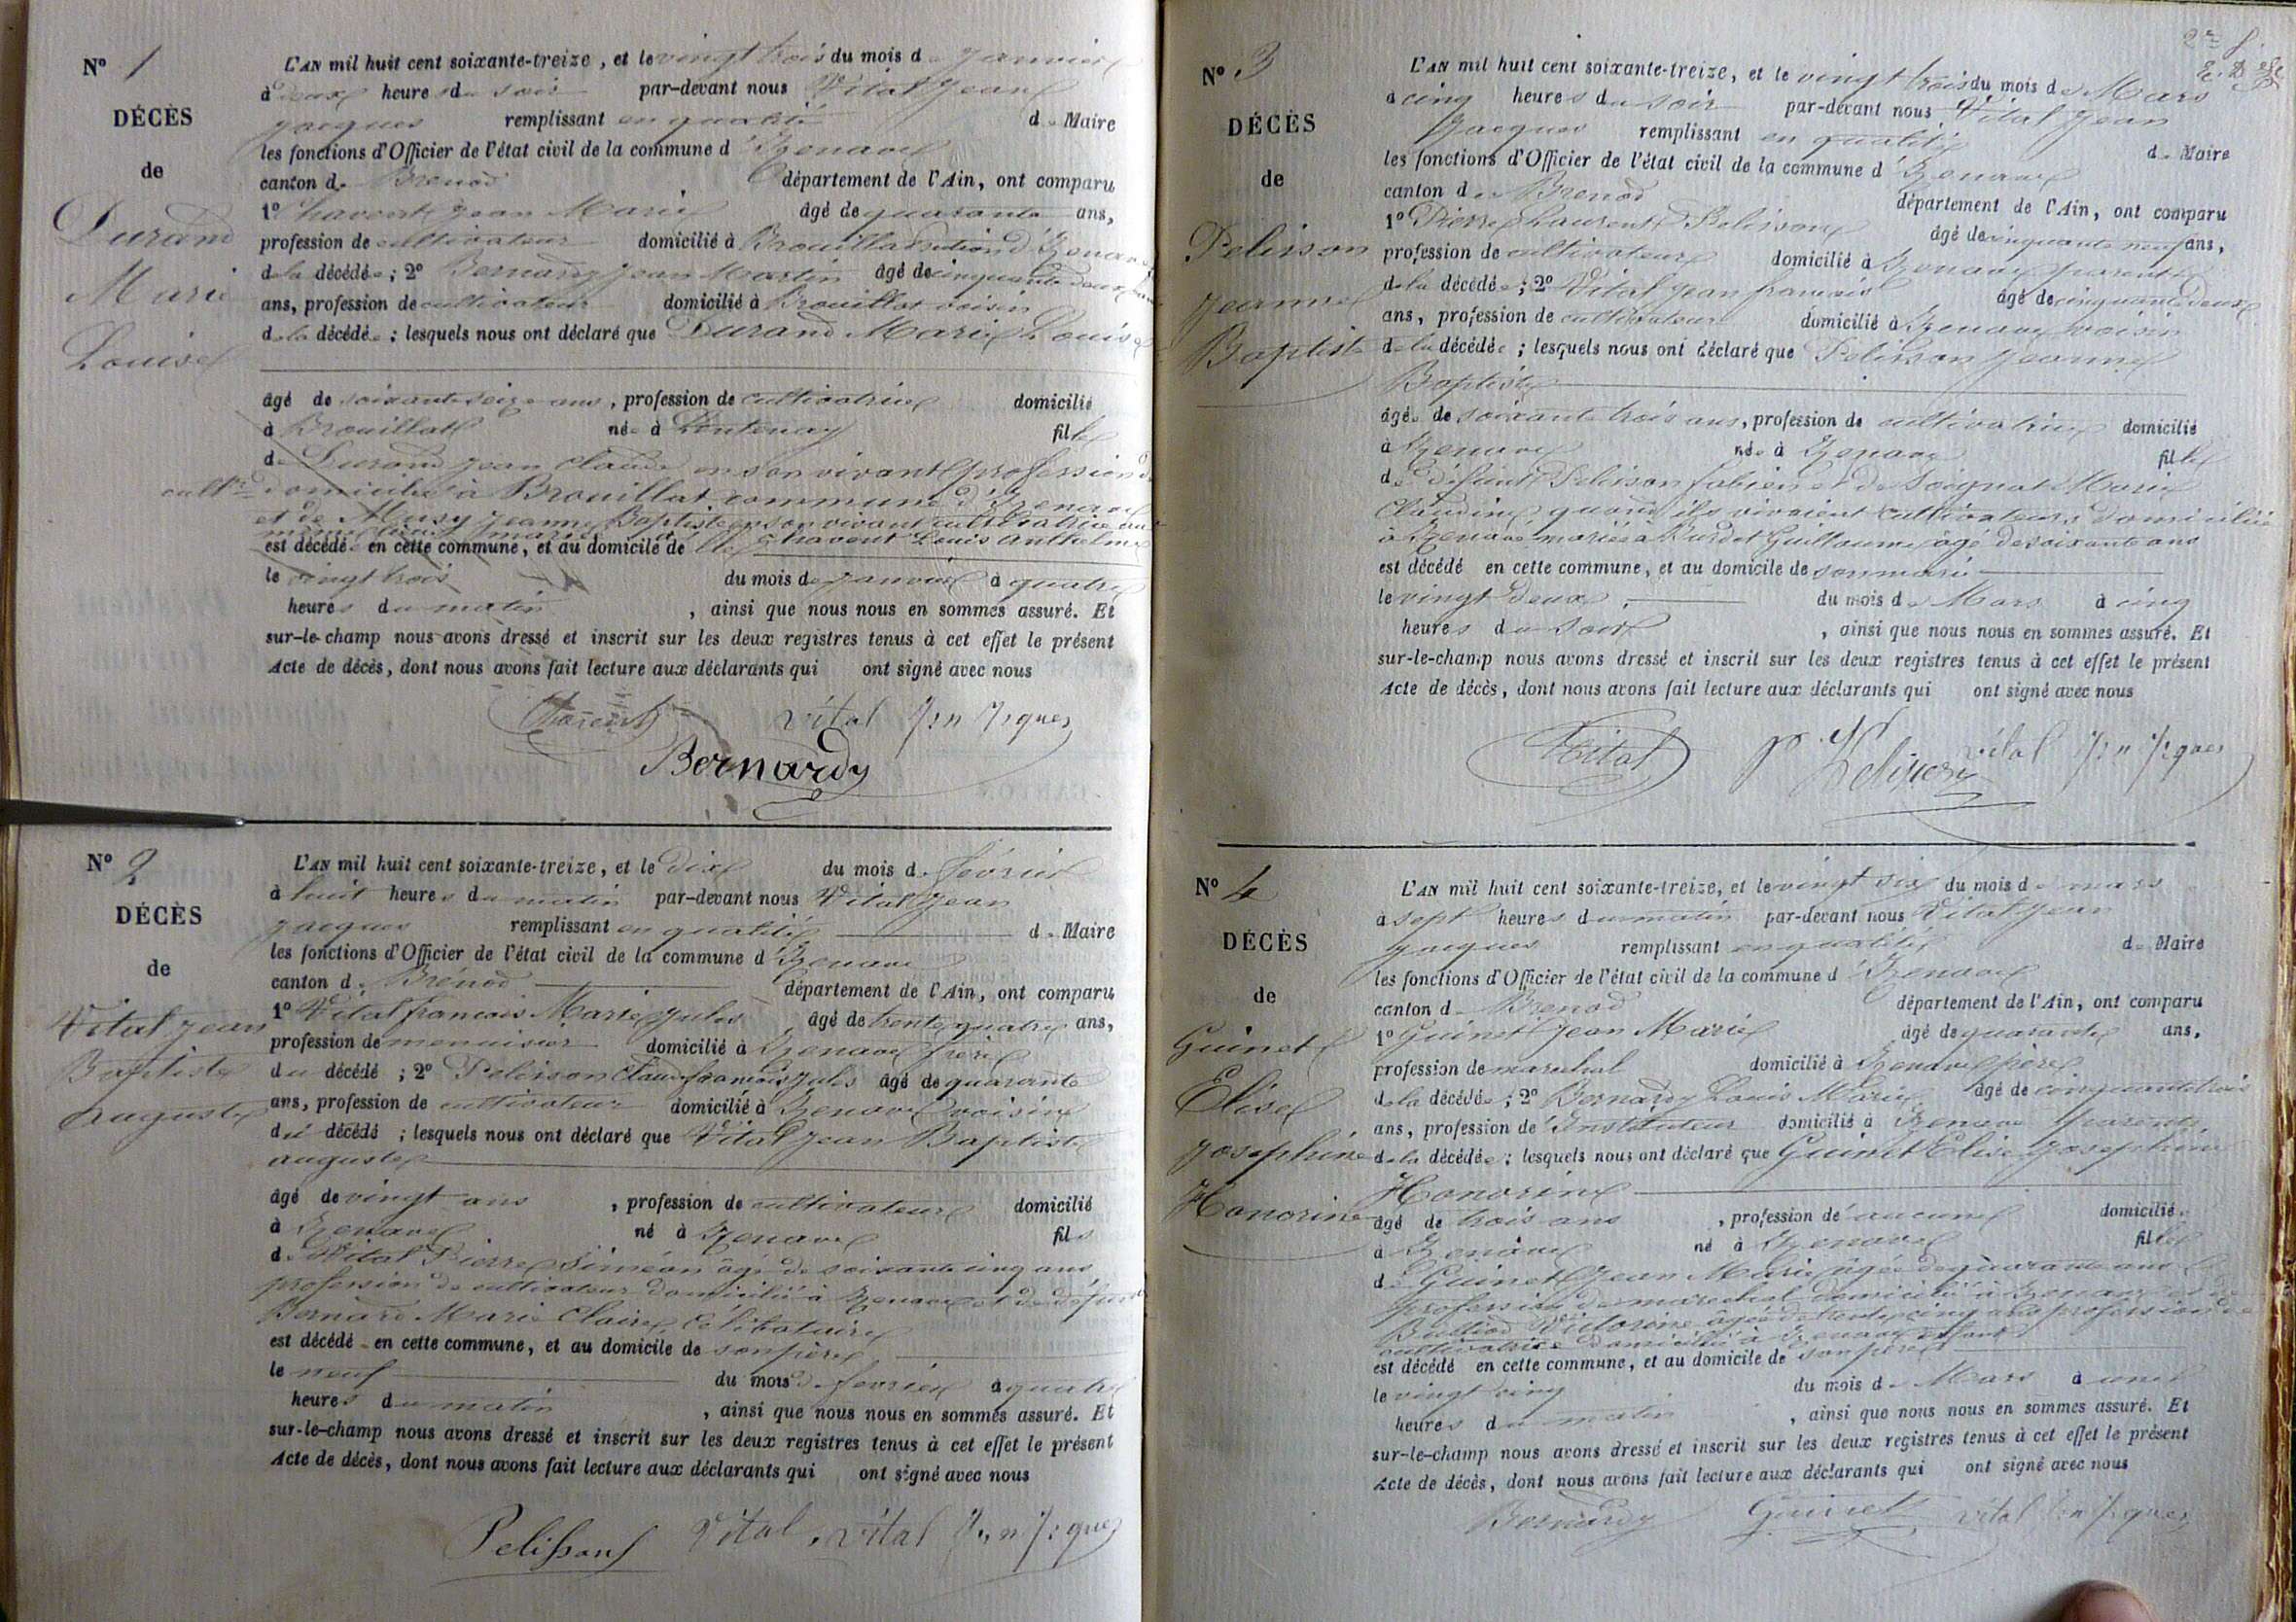 N° 1
DÉCÈS
de
Durand
Marie
Louise
L'AN mil huit cent soixante-treize, et le vingt trois du mois de Janvier
à deux heures du soir par-devant nous Vital Jean
Jacques remplissant en qualité de Maire
les fonctions d'Officier de l'état civil de la commune d'Izenave
canton de Brenod département de l'Ain, ont comparu
1° Chavent Jean Marie âgé de quarante ans,
profession de cultivateur domicilié à Brouillat d'Izenave
de la décédée; 2° Bernardy Jean Martin âgé de cinquante deux
ans, profession de cultivateur domicilié à Brouillat voisin
de la décédée; lesquels nous ont déclaré que Durand Marie Louise
âgé de soixante seize ans, profession de cultivatrice domicilié
à Brouillat née à Lantenay fille
de Durand Jean Claude en son vivant profession de
cultr domicilié à Brouillat commune d'Izenave
et de Musy Jeanne Baptiste en son vivant cultivatrice au
est décédée en cette commune, et au domicile de Chavent Louis Anthelme
le vingt trois du mois de Janvier à quatre
heures du matin, ainsi que nous nous en sommes assuré. Et
sur-le-champ nous avons dressé et inscrit sur les deux registres tenus à cet effet le présent
Acte de décès, dont nous avons fait lecture aux déclarants qui ont signé avec nous
Chavent Vital Jn Jques
Bernardy
N° 2
DÉCÈS
de
Vital Jean
Baptiste
auguste
L'AN mil huit cent soixante-treize, et le Dix du mois de février
à huit heures du matin par-devant nous Vital Jean
Jacques remplissant en qualité de Maire
les fonctions d'Officier de l'état civil de la commune d'Izenave
canton de Brénod département de l'Ain, ont comparu
1° Vital francois Marie Jules âgé de trente quatre ans,
profession de menuisier domicilié à Izenave frère
du décédé; 2° Pelisson Claude francois Jules âgé de quarante
ans, profession de cultivateur domicilié à Izenave voisin
du décédé; lesquels nous ont déclaré que Vital Jean Baptiste
auguste
âgé de vingt ans, profession de cultivateur domicilié
à Izenave né à Izenave fils
de Vital Pierre Siméon âgé de soixante cinq ans
profession de cultivateur domicilié à Izenave et de défunte
Bernard Marie Claire, célibataire
est décédé en cette commune, et au domicile de son père
le neuf du mois de février à quatre
heures du matin, ainsi que nous nous en sommes assuré. Et
sur-le-champ nous avons dressé et inscrit sur les deux registres tenus à cet effet le présent
Acte de décès, dont nous avons fait lecture aux déclarants qui ont signé avec nous
Pelisson Vital Vital Jn Jques
N° 3
DÉCÈS
de
Pelisson
Jeanne
Baptiste
L'AN mil huit cent soixante-treize, et le vingt trois du mois de Mars
à cinq heures du soir par-devant nous Vital Jean
Jacques remplissant en qualité de Maire
les fonctions d'Officier de l'état civil de la commune d'Izenave
canton de Brenod département de l'Ain, ont comparu
1° Pierre Laurent Pelisson âgé de cinquante neuf ans,
profession de cultivateur domicilié à Izenave parent
de la décédée; 2° Vital Jean francois âgé de cinquante deux
ans, profession de cultivateur domicilié à Izenave voisin
de la décédée; lesquels nous ont déclaré que Pelisson Jeanne
Baptiste
âgée de soixante trois ans, profession de cultivatrice domicilié
à Izenave née à Izenave fille
de défunt Pelisson fabien et de Soignat Marie
Claudine quand ils vivaient cultivateurs domiciliés
à Izenave mariée à Burdet Guillaume âgé de soixante ans
est décédé en cette commune, et au domicile de son mari
le vingt deux du mois de Mars à cinq
heures du soir, ainsi que nous nous en sommes assuré. Et
sur-le-champ nous avons dressé et inscrit sur les deux registres tenus à cet effet le présent
Acte de décès, dont nous avons fait lecture aux déclarants qui ont signé avec nous
Vital Pelisson Vital Jn Jques
N° 4
DÉCÈS
de
Guinet
Elise
Josephine
Honorine
L'AN mil huit cent soixante-treize, et le vingt six du mois de mars
à sept heures du matin par-devant nous Vital Jean
Jacques remplissant en qualité de Maire
les fonctions d'Officier de l'état civil de la commune d'Izenave
canton de Brenod département de l'Ain, ont comparu
1° Guinet Jean Marie âgé de quarante ans,
profession de marechal domicilié à Izenave père
de la décédée; 2° Bernardy Louis Marie âgé de cinquante trois
ans, profession de Instituteur domicilié à Izenave parent
de la décédée; lesquels nous ont déclaré que Guinet Elise Josephine
Honorine
âgé de trois ans, profession de aucune domiciliée
à Izenave né à Izenave fille
de Guinet Jean Marie âgée de quarante ans
profession de marechal domicilié à Izenave et de
âgée de trente cinq ans profession de
cultivatrice domiciliée à Izenave
est décédé en cette commune, et au domicile de son père
le vingt cinq du mois de Mars à une
heures du matin, ainsi que nous nous en sommes assuré. Et
sur-le-champ nous avons dressé et inscrit sur les deux registres tenus à cet effet le présent
Acte de décès, dont nous avons fait lecture aux déclarants qui ont signé avec nous
Bernardy Guinet Vital Jn Jques